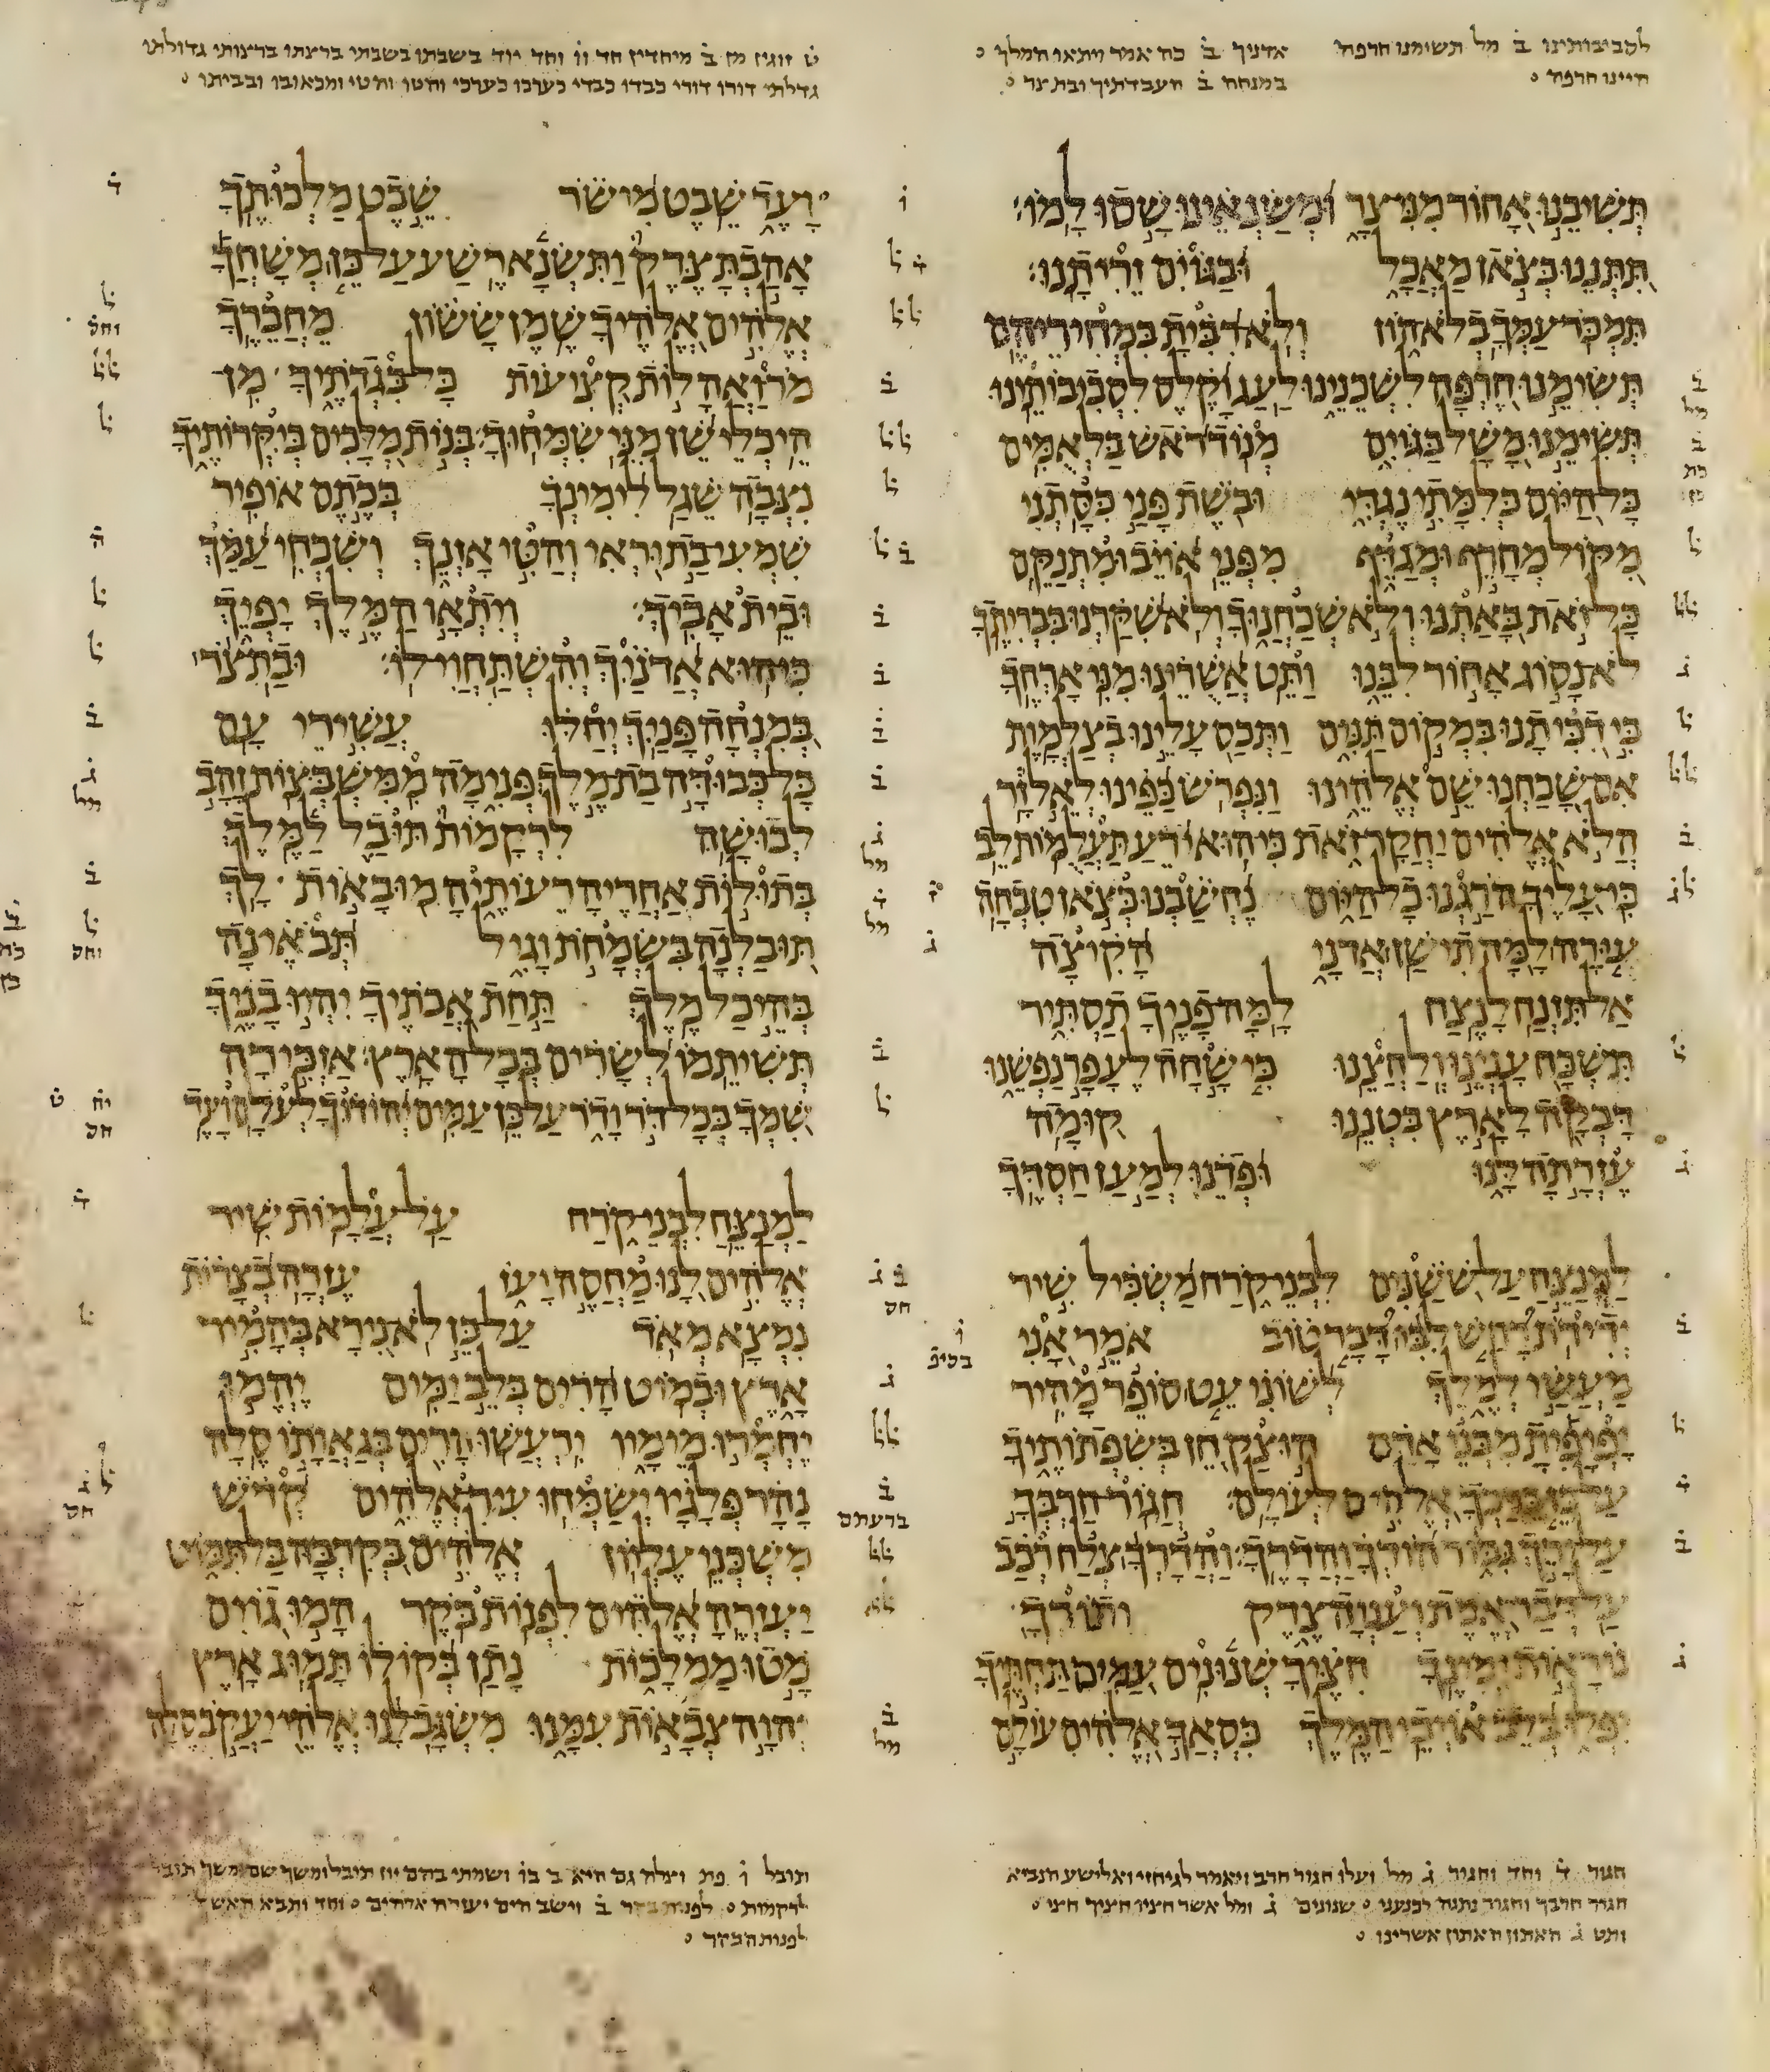 לסביבותינו ב̇ מל תשימנו חרפה אדניך ב̇ כה אמר ויתאו המלך
היינו חרפה במנחה ב̇ העבדתיך ובת צר
ט̇ זוגין מן ב̇ מיחדין חד וו וחד יוד בשבתו בשבתי ברצתו ברצותי גדולתו
גדלתי דורו דורי כבדו כבדי כערכו כערכי וחטו וחטי ומכאובו ובביתו
תשיבנו אחור מני צר ומשנאינו שסו למו
תתננו כצאן מאכל ובגוים זריתנו
תמכר עמך בלא הון ולא רבית במחיריהם
תשימנו חרפה לשכנינו לעג וקלס לסביבותינו
תשימנו משל בגוים מנוד ראש בל אמים
כל היום כלמתי נגדי ובשת פני כסתני
מקול מחרף ומגדף מפני אויב ומתנקם
כל זאת באתנו ולא שכחנוך ולא שקרנו בבריתך
לא נסוג אחור לבנו ותט אשרינו מני ארחך
כי דכיתנו במקום תנים ותכס עלינו בצלמות
אם שכחנו שם אלהינו ונפרש כפינו לאל זר
הלא אלהים יחקר זאת כי הוא ידע תעלמות לב
כי עליך הרגנו כל היום נחשבנו כצאן טבחה
עורה למה תישן אדני הקיצה
אל תזנח לנצח למה פניך תסתיר
תשכח ענינו ולחצנו כי שחה לעפר נפשנו
דבקה לארץ בטננו קומה
עזרתה לנו ופדנו למען חסדך
למנצח על ששנים לבני קרח משכיל שיר
ידידת רחש לבי דבר טוב אמר אני
מעשי למלך לשוני עט סופר מהיר
יפיפית מבני אדם הוצק חן בשפתותיך
על כן ברכך אלהים לעולם חגור חרבך
על ירך גבור הודך והדרך והדרך צלח רכב
על דבר אמת וענוה צדק ותורך
נוראות ימינך חציך שנונים עמים תחתיך
יפלו בלב אויבי המלך כסאך אלהים עולם
ועד שבט מישר שבט מלכותך
אהבת צדק ותשנא רשע על כן משחך
אלהים אלהיך שמן ששון מחבריך
מר ואהלות קציעות כל בגדתיך מן
היכלי שן מני שמחוך בנות מלכים ביקרותיך
נצבה שגל לימינך בכתם אופיר
שמעי בת וראי והטי אזנך ושכחי עמך
ובית אביך ויתאו המלך יפיך
כי הוא אדניך והשתחוי לו ובת צר
במנחה פניך יחלו עשירי עם
כל כבודה בת מלך פנימה ממשבצות זהב
לבושה לרקמות תובל למלך
בתולות אחריה רעותיה מובאות לך
תובלנה בשמחת וגיל תבאינה
בהיכל מלך תחת אבתיך יהיו בניך
תשיתמו לשרים בכל הארץ אזכירה
שמך בכל דר ודר על כן עמים יהודוך לעלם ועד
למנצח לבני קרח על עלמות שיר
אלהים לנו מחסה ועז עזרה בצרות
נמצא מאד על כן לא נירא בהמיר
ארץ ובמוט הרים בלב ימים יהמו
יחמרו מימיו ירעשו הרים בגאותו סלה
נהר פלגיו ישמחו עיר אלהים קדש
משכני עליון אלהים בקרבה בל תמוט
יעזרה אלהים לפנות בקר המו גוים
מטו ממלכות נתן בקולו תמוג ארץ
יהוה צבאות עמנו משגב לנו אלהי יעקב סלה
חגור ד̇ וחד וחגור ג̇ מל ועלו חגור חרב ויאמר לגיחזי ואלישע הנביא
חגור חרבך וחגור נתנה לכנעני שנונים ג̇ ומל אשר חציו חציך חצי
ותט ג̇ האתון האתון אשרינו
לרקמות לפנות בקר ב̇ וישב הים יעזרה אלהים וחד ותבא האשה
לפנות הבקר